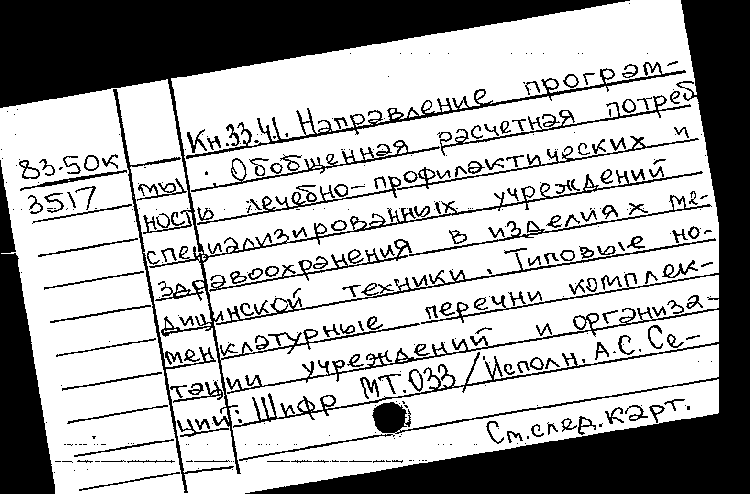 83-50к
3517
Кн.33.41. Направление програм-
мы: Обобщенная расчетная потреб
ность лечебно-профилактических и
специализированных учреждений
здравоохранения в изделиях ме-
дицинской техники. Типовые но-
менклатурные перечни комплек-
тации учреждений и организа-
ций: Шифр МТ.033/Исполн. А.С. Се-
См.след.карт.